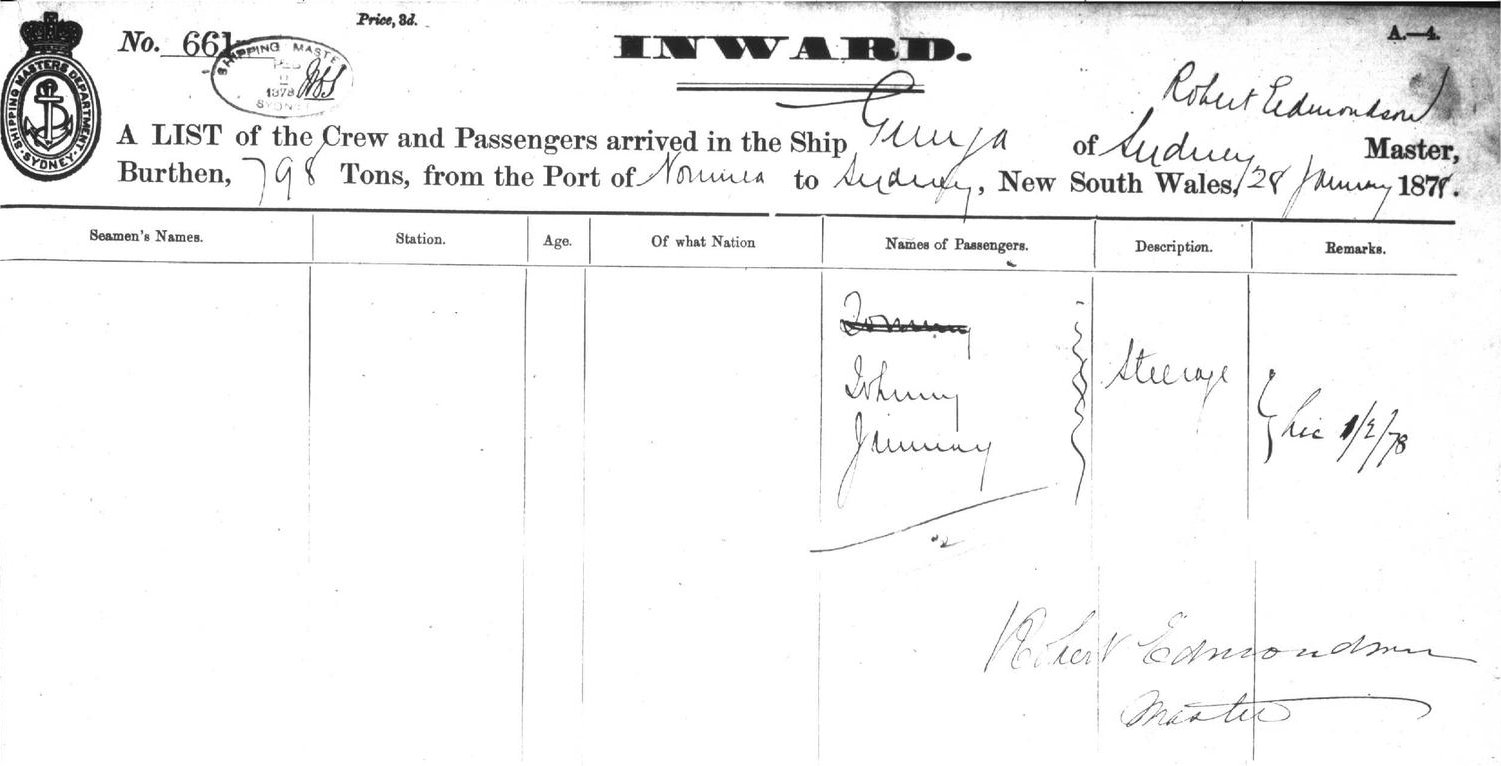 Price, 3d.
A.—4.
No. 661
INWARD.
SHIPPING MASTER
1878
SYDNEY
SHIPPING MASTERS DEPARTMENT
SYDNEY
Robert Edmondson
A LIST of the Crew and Passengers arrived in the Ship Gunga of Sydney Master,
Burthen, 798 Tons, from the Port of Noumea to Sydney, New South Wales, 28 January 1878.
Seamen's Names. Station. Age. Of what Nation Names of Passengers. Description. Remarks.
Tommy
Johnny Steerage
Jimmy 1/2/78
Robert Edmondson
Master